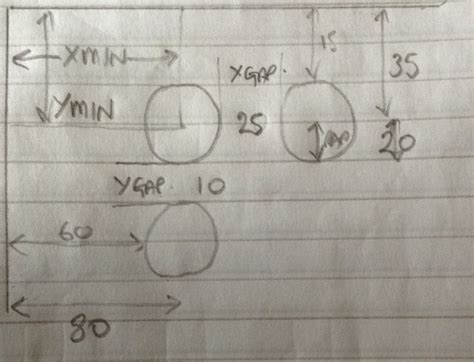 15
XMIN
XGAP.
35
YMIN
25
20
YGAP. 10
60
80